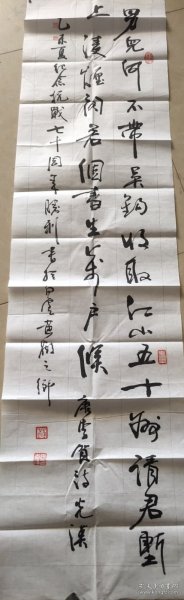 男儿何不带吴钩收取江山五十州请君暂
上凌烟阁若个书生万户侯 唐李贺诗 光汉
乙未夏纪念抗战七十周年胜利书于
之乡